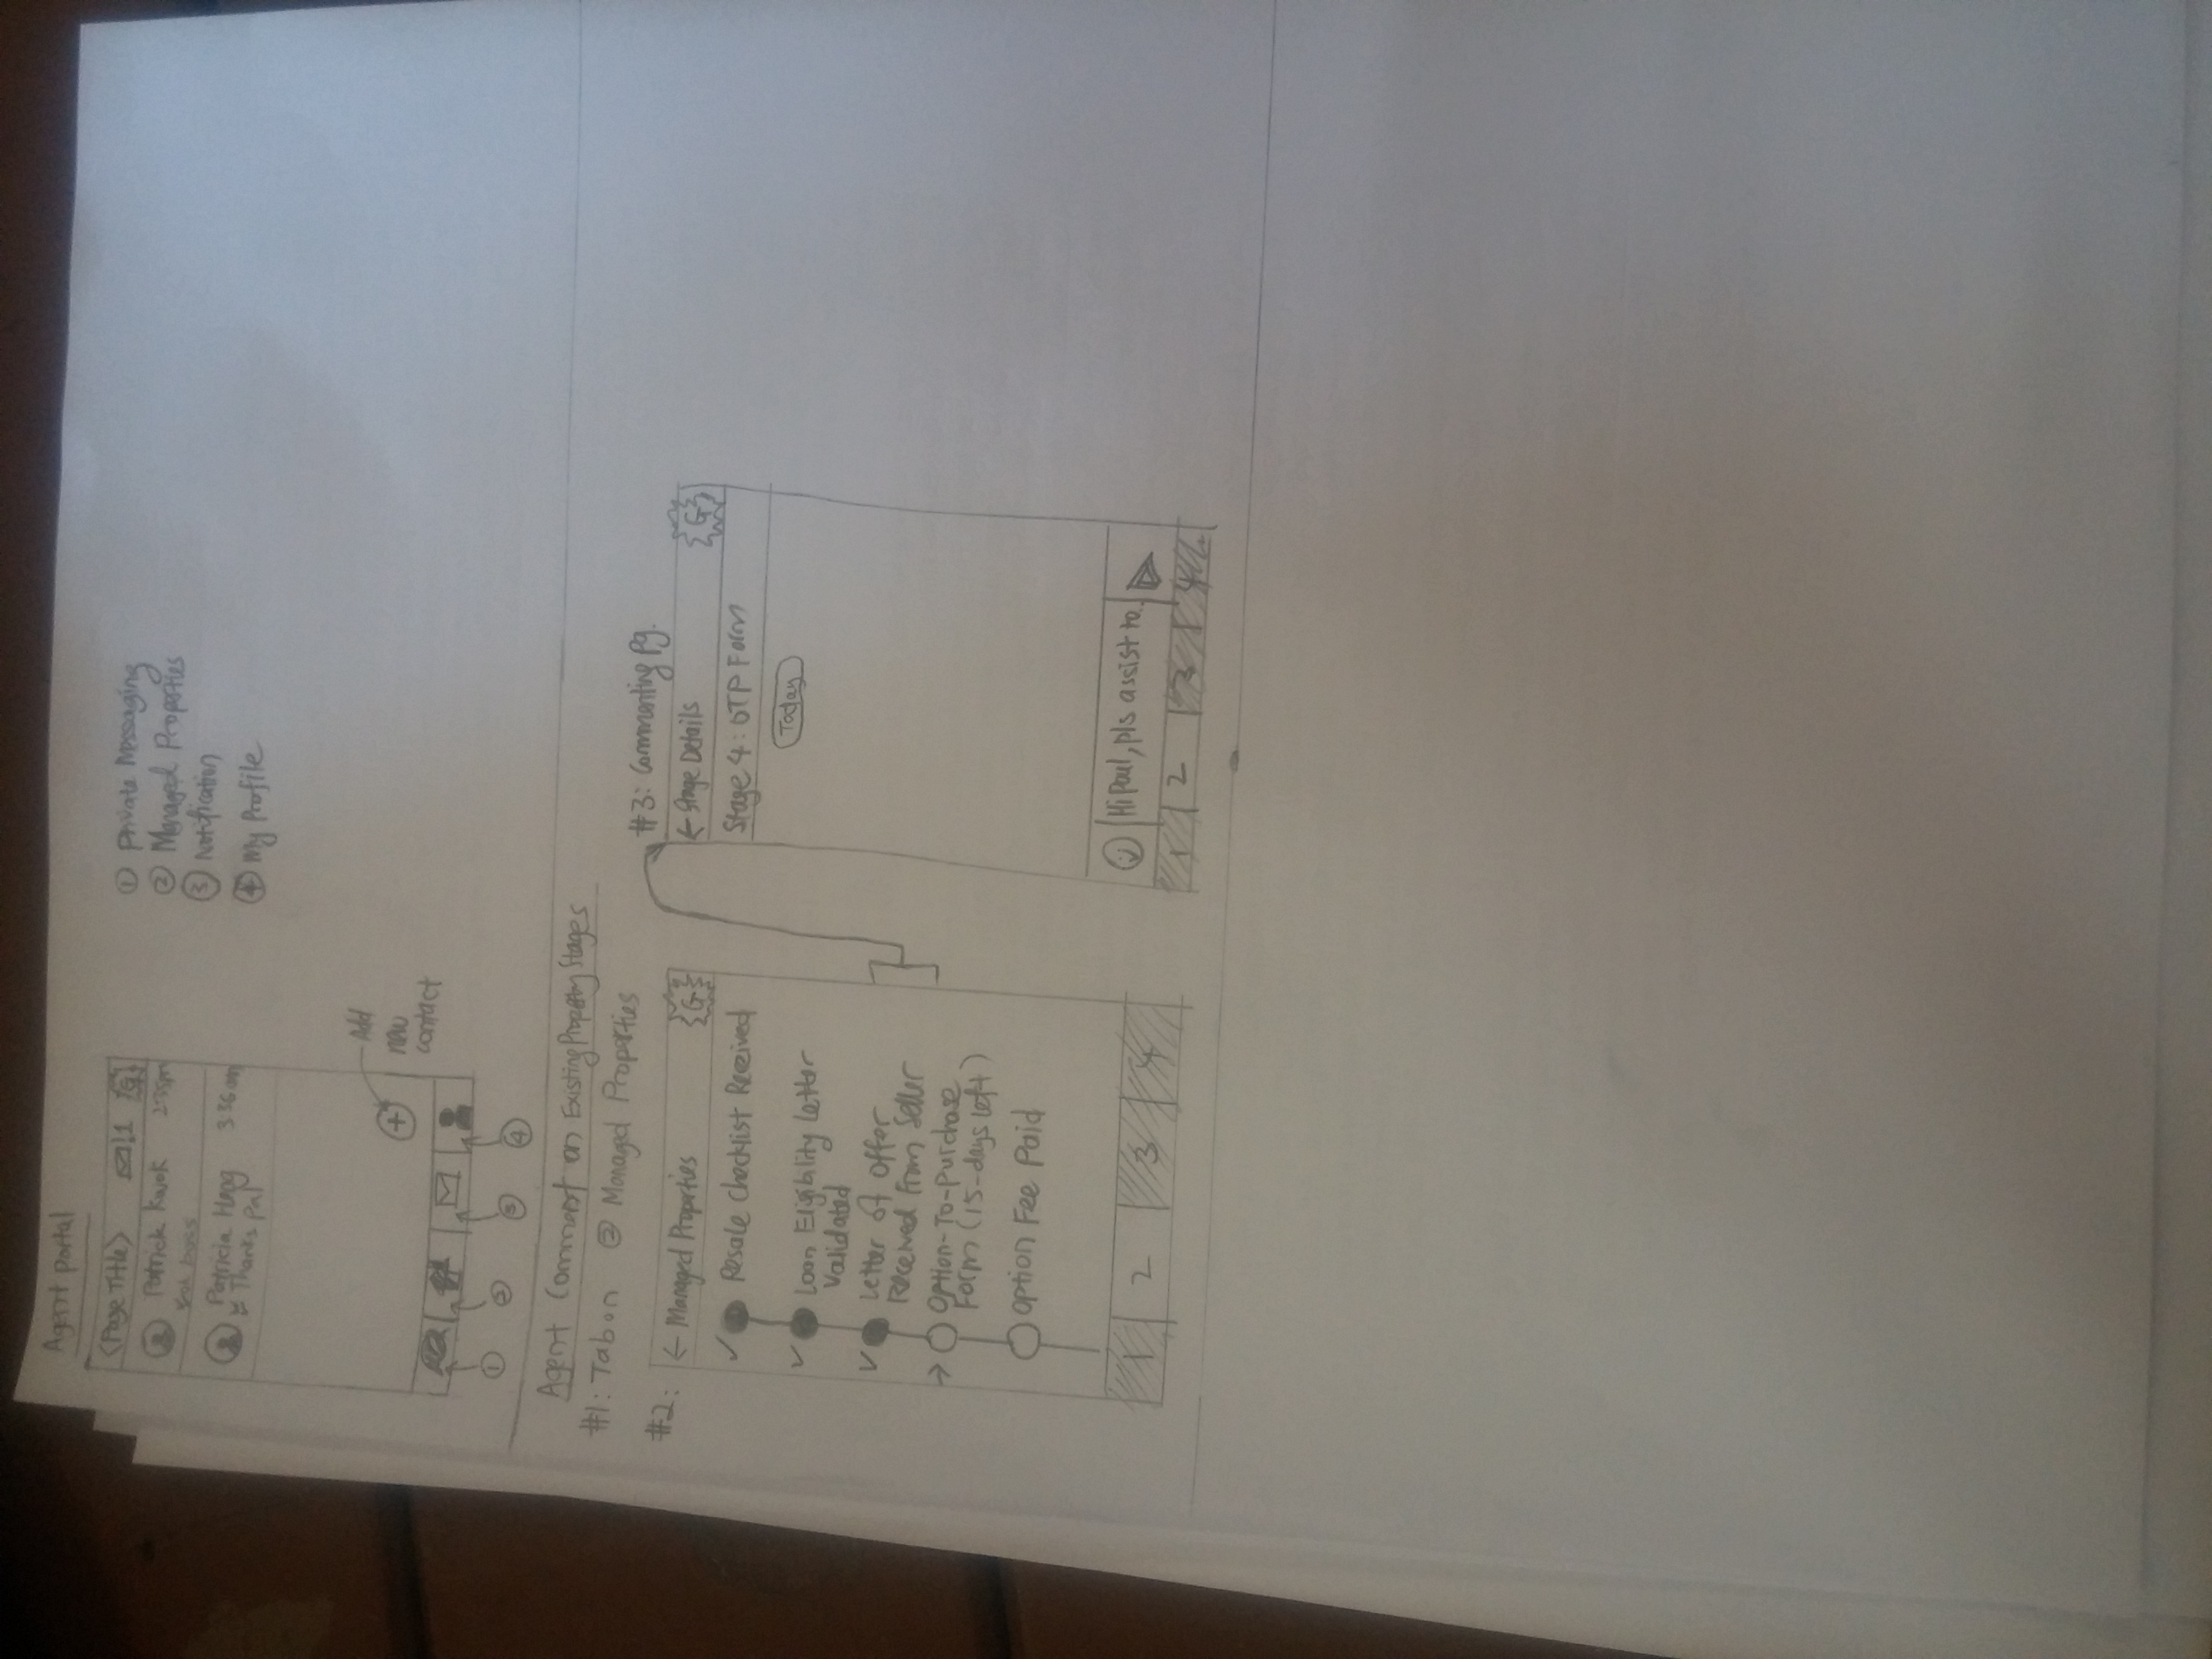 Agent portal
<Page Title> !1 G
Patrick Kwok 2:35pm
boss
Patricia Hong 3:36am
Thanks pal
+
Add
new
contact
① ② ③ ④
① Private Messaging
② Managed Properties
③ Notification
④ My Profile
Agent Comment on Existing Property Stages
#1: Tab on ② Managed Properties
#2:
← Managed Properties G
✓ Resale Checklist Received
✓ Loan Eligibility Letter
Validated
✓ Letter of offer
Received From Seller
→ Option-To-Purchase
Form (15-days left)
Option Fee Paid
1 2 3 4
#3: Commenting pg.
← Stage Details G
Stage 4: OTP Form
Today
Hi Paul, pls assist to..
1 2 3 4